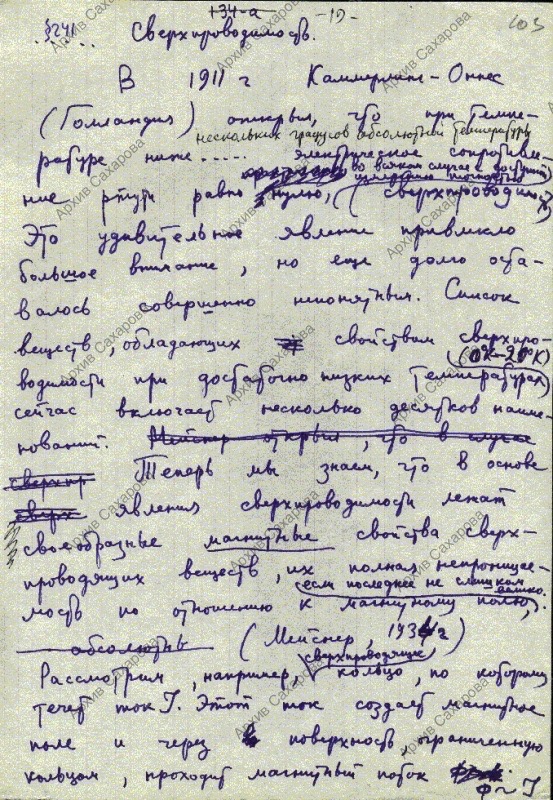 +34-а   -19-   103
§241
Сверхпроводимость.
В 1911 г Каммерлинг-Оннес
(Голландия) открыл, что при темпе-
нескольких градусов абсолютной температуры
ратуре ниже ..... электрическое сопротивле-
во всяком случае с хорошей
измерению точностью
ние ртути равно нулю, (сверхпроводим.)
Это удивительное явление привлекло
большое внимание, но еще долго оста-
валось совершенно непонятным. Список
веществ, обладающих свойствам сверхпро-
(0°К-20°К)
водимости при достаточно низких температурах
сейчас включает несколько десятков наиме-
нований. Мейснер открыл, что в случае
сверхпр Теперь мы знаем, что в основе
сверх явления сверхпроводимости лежат
своеобразные магнитные свойства сверх-
проводящих веществ, их полная непроницае-
если последнее не слишком
велико.
мость по отношению к магнитному полю,
абсолютно (Мейснер, 1934 г)
сверхпроводящее
Рассмотрим, например, кольцо, по которому
течет ток I. Этот ток создает магнитное
поле и через поверхность, ограниченную
кольцом, проходит магнитный поток
Φ~I
Архив Сахарова